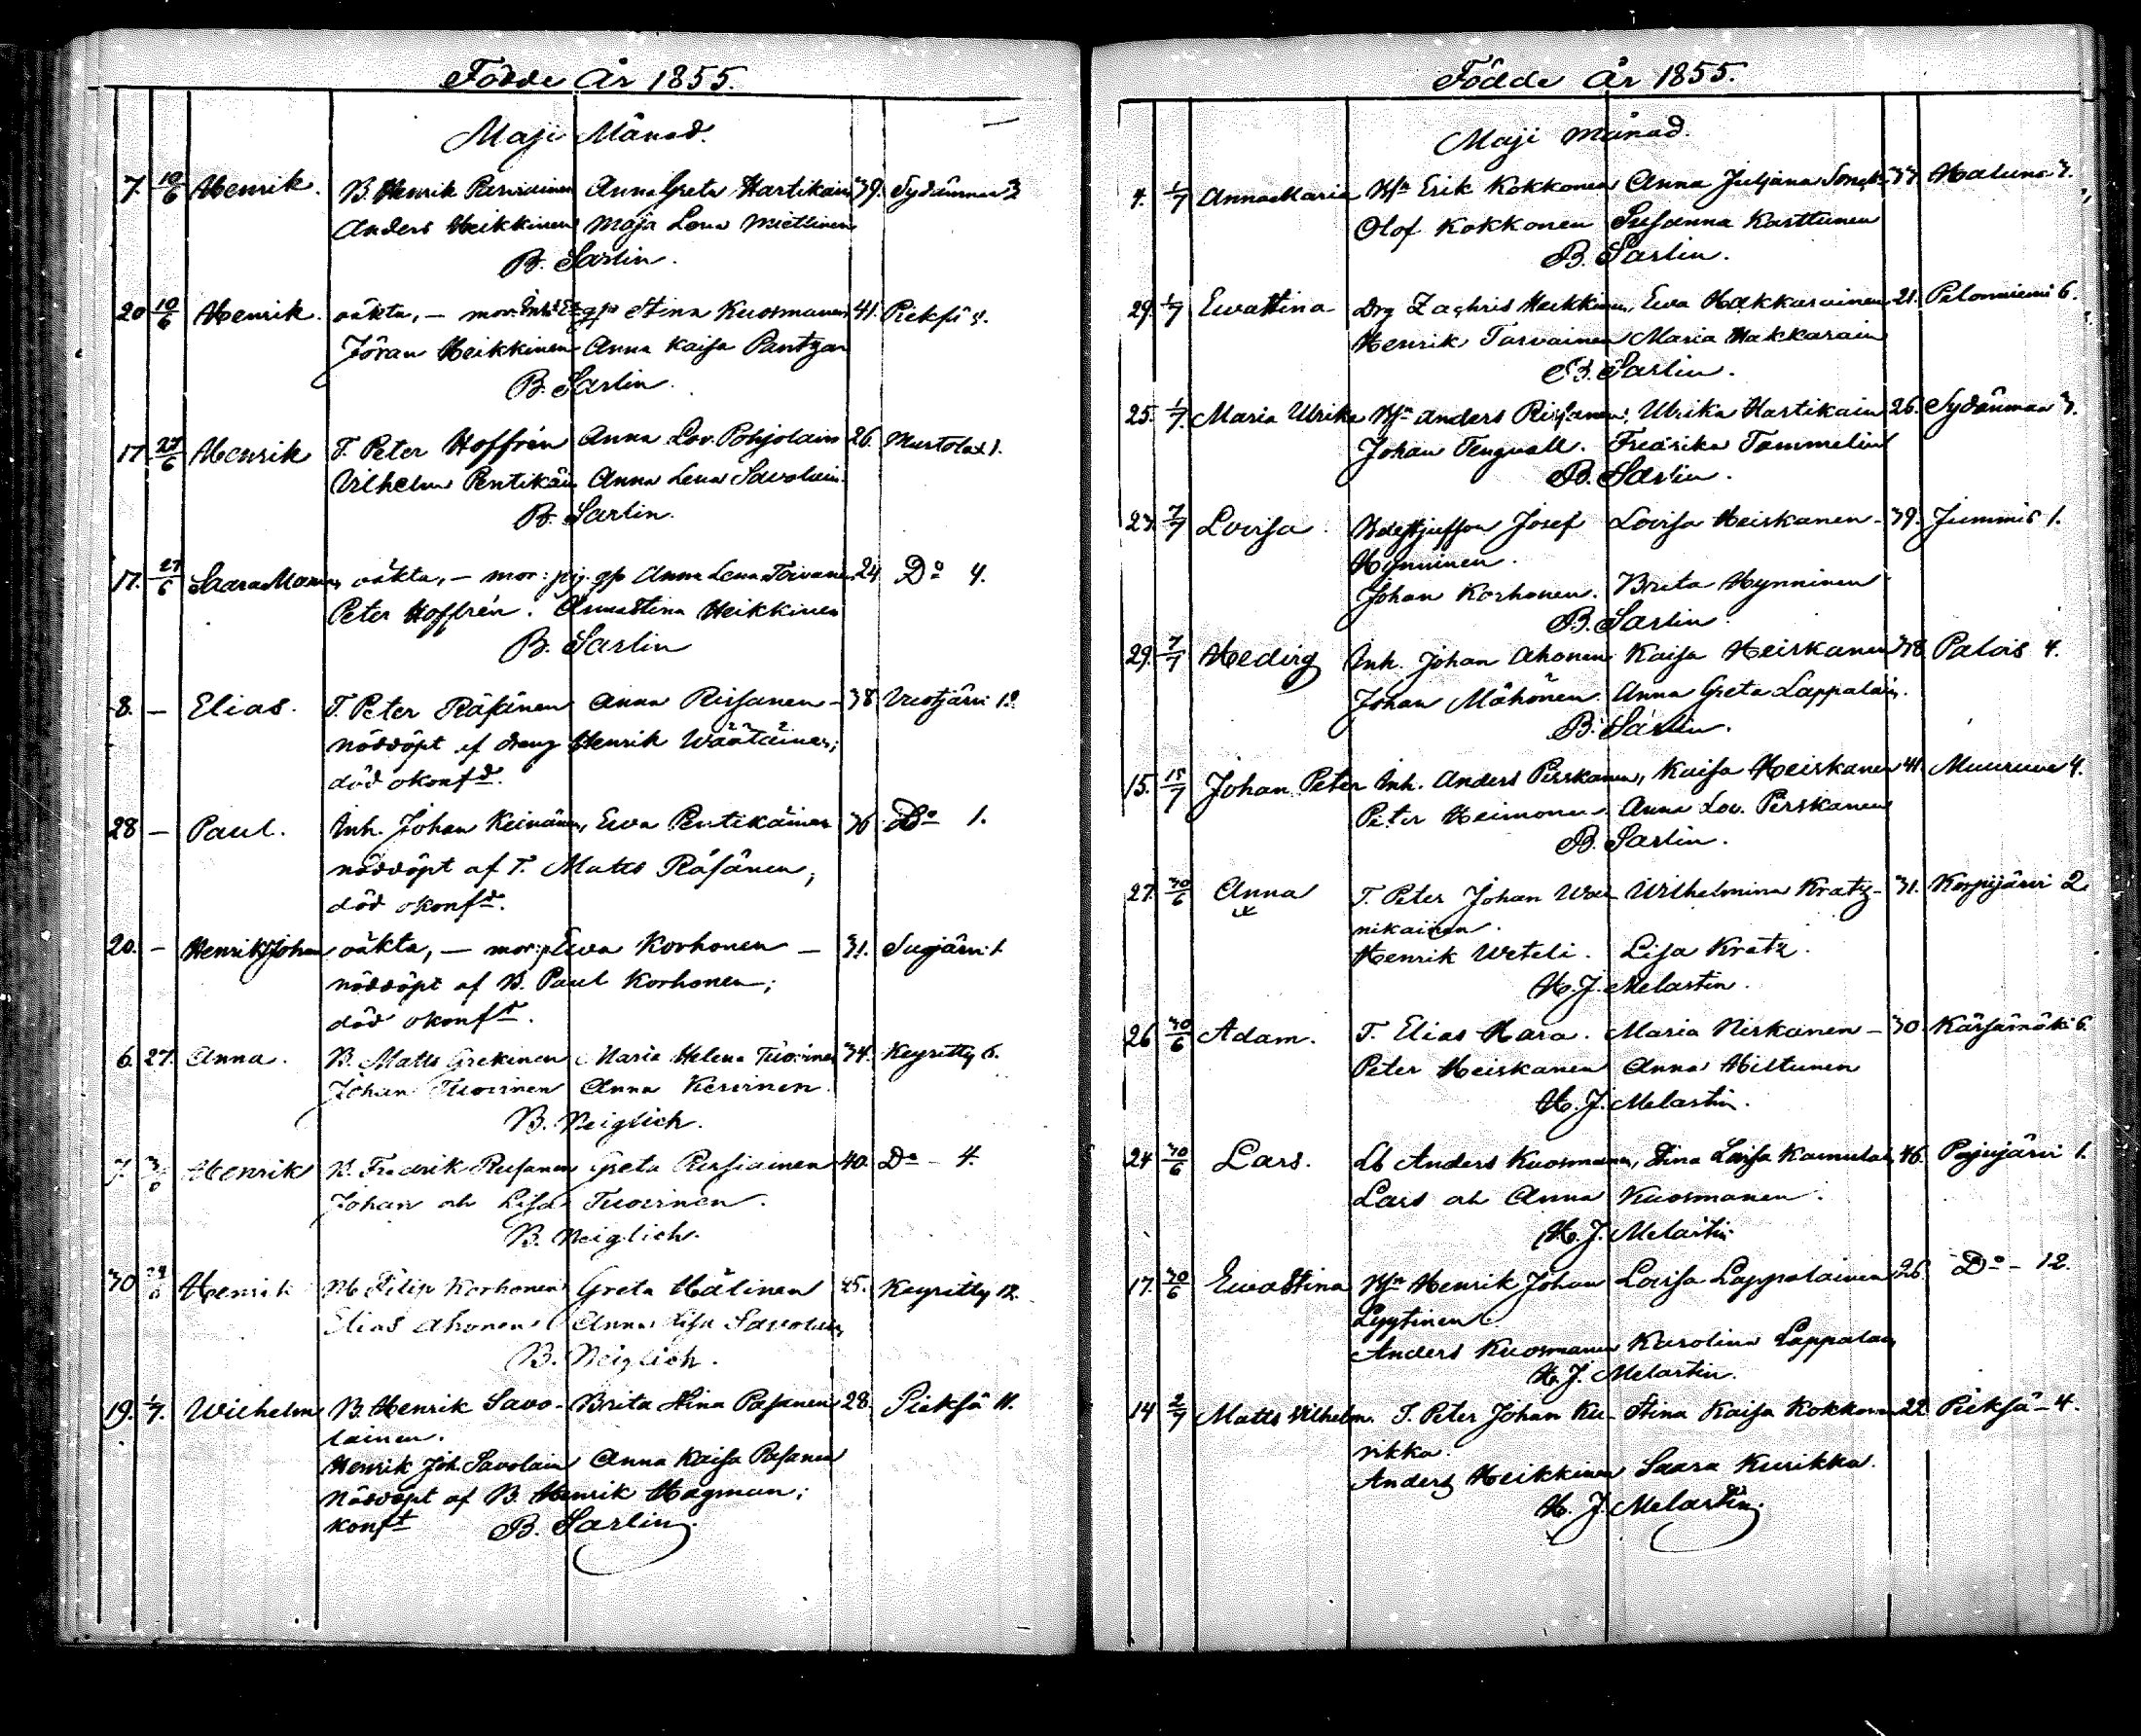 Födde År 1855.
Maji Månad.
7. 10/6 Henrik. B. Henrik Parviainen Anna Greta Hartikain 39. Sydänmaa 3
Anders Heikkinen Maja Lena Miettinen
B. Sarlin.
20 10/6 Henrik. oäkta, – mor: Inh. Stina Kuosmanen 41. Pieksä
Jöran Heikkinen Anna Kaisa Pantzar
B. Sarlin.
17. 27/6 Henrik T. Peter Hoffrén Anna Lov. Pohjolain 26. Murtolax 1.
Vilhelm Pentikäin Anna Lena Savolain.
B. Sarlin.
17. 27/6 oäkta, – mor: pig. Anna Lena Toivanen 24 Do 4.
Peter Hoffrén. Anna Stina Heikkinen
B. Sarlin
8. – Elias. T. Peter Räsänen Anna Rissanen – 38 12.
nöddöpt af dreng Henrik Wäätäinen;
död okonfd.
28 – Paul. Inh. Johan Keinänen, Ewa Pentikäinen 36 Do 1.
nöddöpt af T. Matts Räsänen;
död okonfd.
20. – Henrik Johan oäkta, – mor: p Ewa Korhonen – 31. 1.
nöddöpt af B. Paul Korhonen;
död okonft.
6. 27. Anna. B. Matts Maria Helena Tuovinen 34. Keyritty 6.
Johan Tuovinen Anna Kervinen.
B. Neiglich.
7. Henrik B. Fredrik Greta 40. Do – 4.
Johan och Lisa Tuovinen.
B. Neiglich.
30 Henrik Filip Korhonen Greta Hälinen 25. Keyritty 12.
Elias Ahonen Anna Lisa Savolain
B. Neiglich.
19. 1/7. Wilhelm B. Henrik Savo- Brita Stina Pasanen 28. Pieksä 11.
lainen.
Henrik Joh. Savolain Anna Kaisa Pasanen
Nöddöpt af B. Henrik Hagman;
konft B. Sarlin.
Födde År 1855.
Maji månad.
4. 1/7 Anna Maria Erik Kokkonen Anna Juljana 37. Haluna 3.
Olof Kokkonen Susanna Karttunen
B. Sarlin.
29. 1/7 Ewa Stina Drg Zachris Heikkinen, Ewa Hakkarainen 21. Palonniemi 6.
Henrik Tarvainen Maria Hakkarain
B. Sarlin.
25. 1/7 Maria Ulrika Anders Rissanen, Ulrika Hartikain 26. Sydänmaa 3.
Johan Tengvall. Fredrika Tammelin
B. Sarlin.
23. 7/7 Lovisa. Josef Lovisa Heiskanen – 39. Jummis 1.
Hynninen.
Johan Korhonen. Brita Hynninen
B. Sarlin.
29. 7/7 Hedvig Inh. Johan Ahonen Kaisa Heiskanen 38. Palois 4.
Johan Mähönen. Anna Greta Lappalain.
B. Sarlin.
15. 15/7 Johan Peter Inh. Anders Pirskanen, Kaisa Heiskanen 41. Muuruve 4.
Peter Heimonen Anna Lov. Pirskanen
B. Sarlin.
27. 30/6 Anna T. Peter Johan Wai- Wilhelmina Kratz – 31. Korpijärvi 2.
nikainen.
Henrik Weteli. Lisa Kratz.
H. J. Melartin.
26 30/6 Adam. T. Elias Hara. Maria Niskanen – 30. Kärsämäki 6.
Peter Heiskanen Anna Hiltunen
H. J. Melartin.
24 30/6 Lars. Lb Anders Kuosmanen, Stina Lovisa 46. Pajujärvi 1.
Lars och Anna Kuosmanen.
H. J. Melartin.
17. 30/6 Ewa Stina Henrik Johan Lovisa Lappalainen 26. Do – 12.
Lyytinen
Anders Kuosmanen Karolina Lappalain
H. J. Melartin.
14 2/7 Matts Vilhelm. T. Peter Johan Ku- Stina Kaisa Kokkonen 22. Pieksä – 4.
rikka.
Anders Heikkinen Saara Kurikka.
H. J. Melartin.